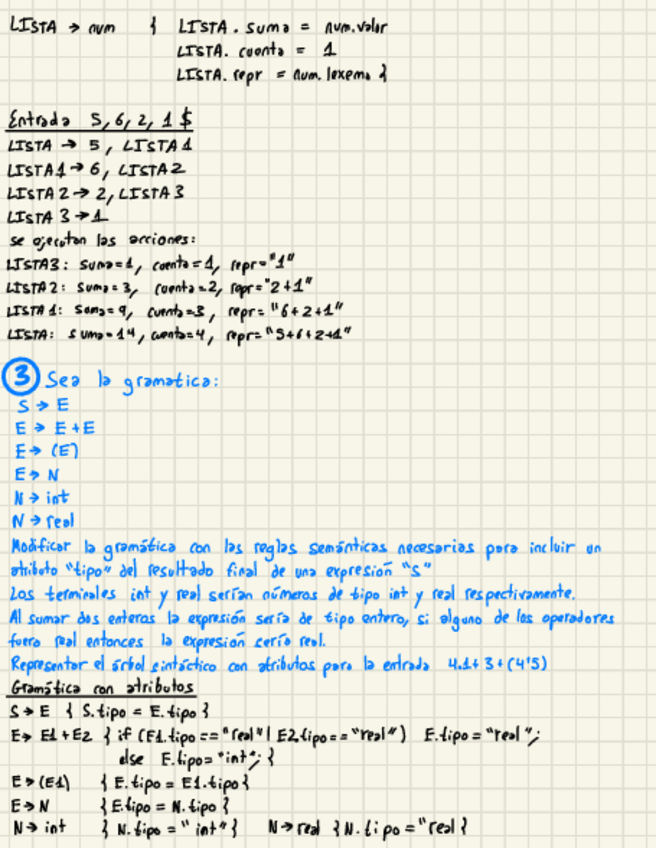 LISTA → num { LISTA.suma = num.valor
LISTA.cuenta = 1
LISTA.repr = num.lexema }
Entrada 5,6,2,1 $
LISTA → 5, LISTA1
LISTA1 → 6, LISTA2
LISTA2 → 2, LISTA3
LISTA3 → 1
se ejecutan las acciones:
LISTA3: suma=1, cuenta=1, repr="1"
LISTA2: suma=3, cuenta=2, repr="2+1"
LISTA1: suma=9, cuenta=3, repr="6+2+1"
LISTA: suma=14, cuenta=4, repr="5+6+2+1"
3 Sea la gramatica:
S → E
E → E+E
E → (E)
E → N
N → int
N → real
Modificar la gramática con las reglas semánticas necesarias para incluir un
atributo "tipo" del resultado final de una expresión "S"
Los terminales int y real serían números de tipo int y real respectivamente.
Al sumar dos enteros la expresión sería de tipo entero, si alguno de los operadores
fuera real entonces la expresión sería real.
Representar el árbol sintáctico con atributos para la entrada 4.1+3+(4'5)
Gramática con atributos
S → E { S.tipo = E.tipo }
E → E1+E2 { if (E1.tipo == "real" | E2.tipo == "real") E.tipo = "real";
else E.tipo= "int"; }
E → (E1) { E.tipo = E1.tipo }
E → N { E.tipo = N.tipo }
N → int { N.tipo = "int" } N → real { N.tipo = "real }